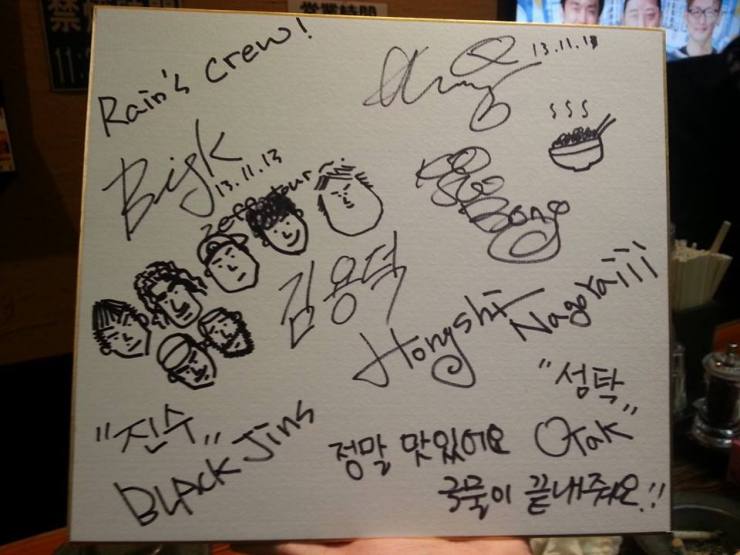 Rain's crew!
13.11.13
BigK
13.11.13
zepp tour
Bongo
김용덕
Hongshi Nagoraiii
"성탁"
"진수"
BLACK Jins
정말 맛있어요 OtaK
국물이 끝내줘요!!